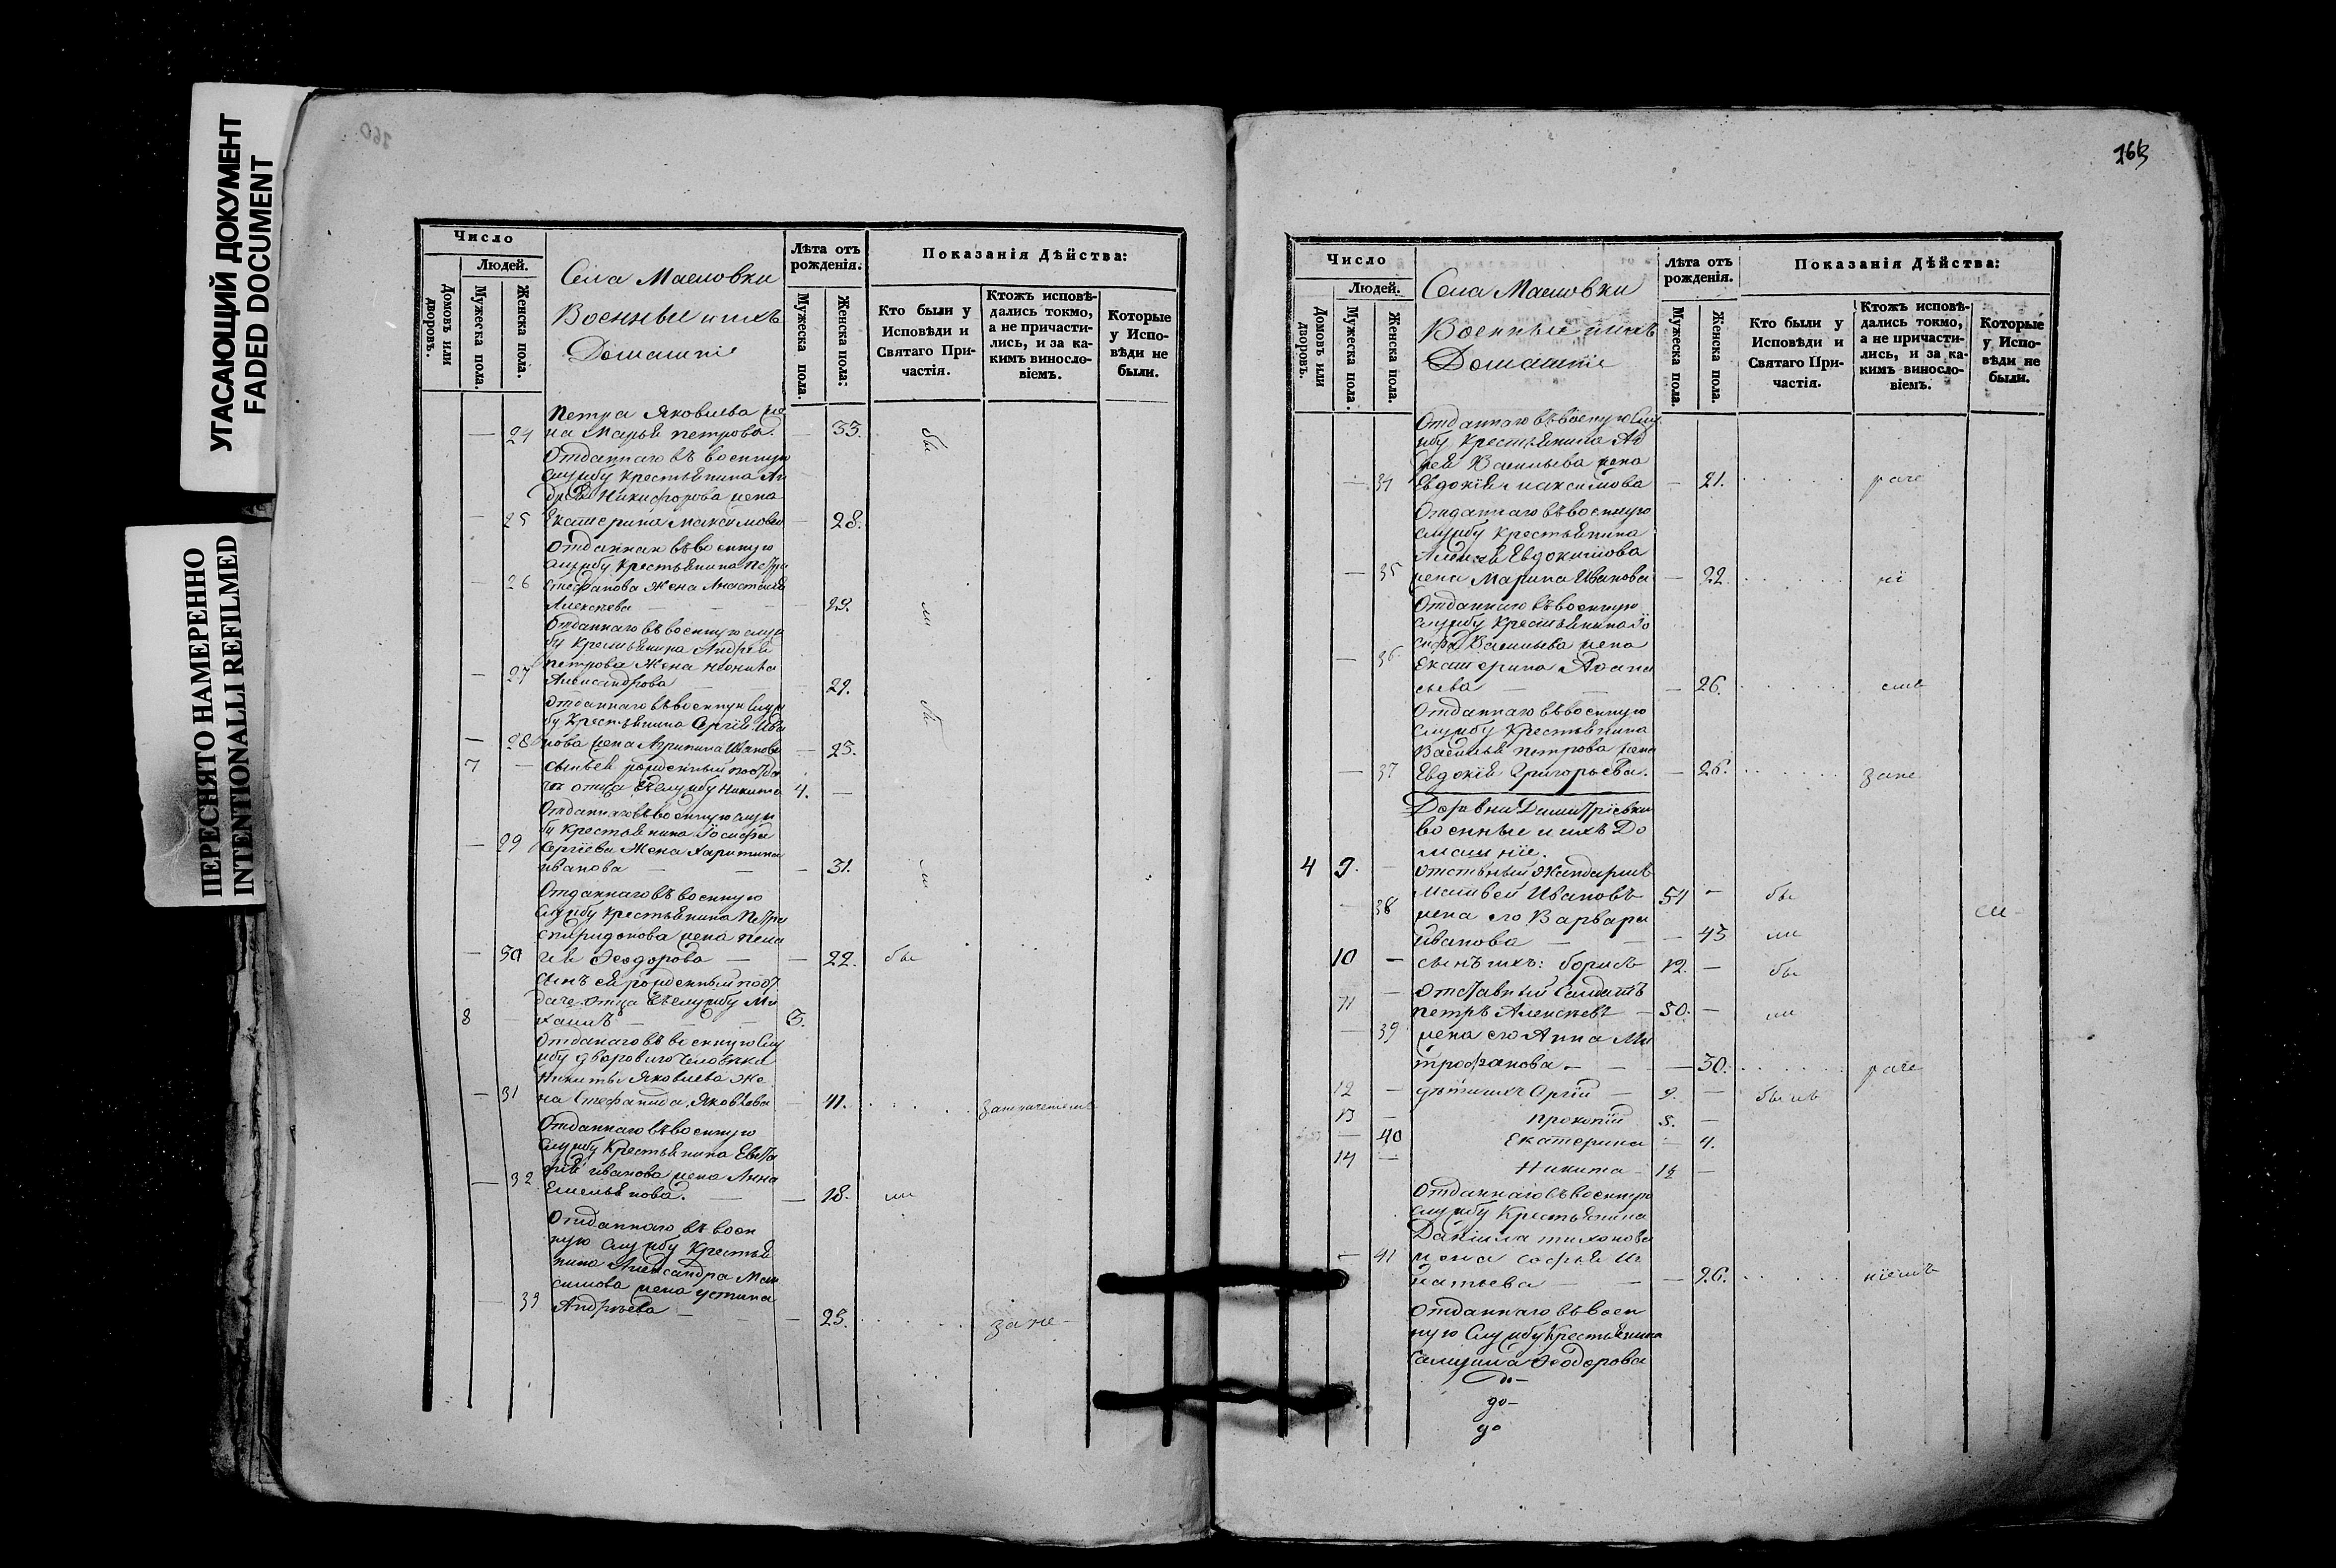 УГАСАЮЩИЙ ДОКУМЕНТ
FADED DOCUMENT
ПЕРЕСНЯТО НАМЕРЕННО
INTENTIONALLI REFILMED
160
Число
Людей.
Домовъ или дворовъ.
Мужеска пола.
Женска пола.
Села Масловки
Военные и ихъ
Домашніе
Лѣта отъ рожденія.
Мужеска пола.
Женска пола:
Показанія Дѣйства:
Кто были у Исповѣди и Святаго Причастія.
Ктожъ исповѣдались токмо, а не причастились, и за какимъ винословіемъ.
Которые у Исповѣди не были.
Петра Яковлева же
— 24 на Марья Петрова. — 33. бы
Отданнаго въ военную
службу Крестьянина Ан
дрея Никифорова жена
— 25 Екатерина Максимова — 28.
Отданнаго въ военную
службу Крестьянина Петра
— 26 Стефанова Жена Анастасія
Алексѣева — — 29. ли
Отданнаго въ военную служ
бу Крестьянина Андрея
Петрова Жена
— 27 Александрова — 29.
Отданнаго въ военную служ
бу Крестьянина Сергія Ива бы
— 28 нова жена Агрипина Иванова — 25.
7 — сынъ ей рожденный по отда
чѣ отца въ службу Никита 4. —
Отданнаго въ военную служ
бу Крестьянина Іосифа
— 29 Сергіева Жена Харитина
Иванова — — 31. ли
Отданнаго въ военную
службу Крестьянина Петра
Спиридонова жена Пела
— 30 гія Ѳеодорова — — 22. бы
Сынъ ей рожденный по от
даче отца въ службу Ми
8 — хаилъ — 3.
Отданаго въ военную слу
жбу двороваго человѣка
Никиты Яковлева Же
— 31 на Стефанида Яковлева — 41.
Отданнаго въ военную
службу Крестьянина Евста
фія Иванова жена Анна
— 32 Емельянова. — — 18. ли
Отданнаго въ воен
ную службу Крестья
нина Александра Мак
симова жена Устина
— 33 Андреева — — 25. за не
163
Число
Людей.
Домовъ или дворовъ.
Мужеска пола.
Женска пола.
Села Масловки
Военные и ихъ
Домашніе
Лѣта отъ рожденія.
Мужеска пола.
Женска пола.
Показанія Дѣйства:
Кто были у Исповѣди и Святаго Причастія.
Ктожъ исповѣдались токмо, а не причастились, и за какимъ винословіемъ.
Которые у Исповѣди не были.
Отданнаго въ военую слу
жбу Крестьянина Ан
рея Васильева жена
— 34 Евдокія Максимова — 21. раче
Отданнаго въ военную
службу Крестьянина
Алексѣя Евдокимова
— 35 жена Марина Иванова — 22. ні
Отданнаго въ военную
службу Крестьянина Іо
сифа Васильева жена
— 36 Екатерина Аѳана
сьева — — 26. емъ
Отданнаго въ военную
службу Крестьянина
Василья Петрова жена
— 37 Евдокія Григорьева. — 26. зане
Деревни Димитріевки
военные и ихъ До
машніе.
4 9. — Отставный Жандармъ
Матвей Ивановъ 54 — бы
— 38 жена его Варвара
Иванова — — 45 ли
10 — сынъ ихъ: Борисъ 12. — бы
— Отставный Солдатъ
11 Петръ Алексѣевъ — 50. — ли
— 39 жена его Анна Ми
трофанова — — 30. раче
12 — дѣти ихъ Сергій — 9. —
13 — Прокопій 8. —
— 40 Екатерина — 4.
14 — Никита —
Отданнаго въ военную
службу Крестьянина
Даніила Тихонова
— 41 жена Софья Иг
натьева — — 26. ніемъ
Отданнаго въ воен
ную службу Крестьянина
Самуила Ѳеодорова
до —
до —
до